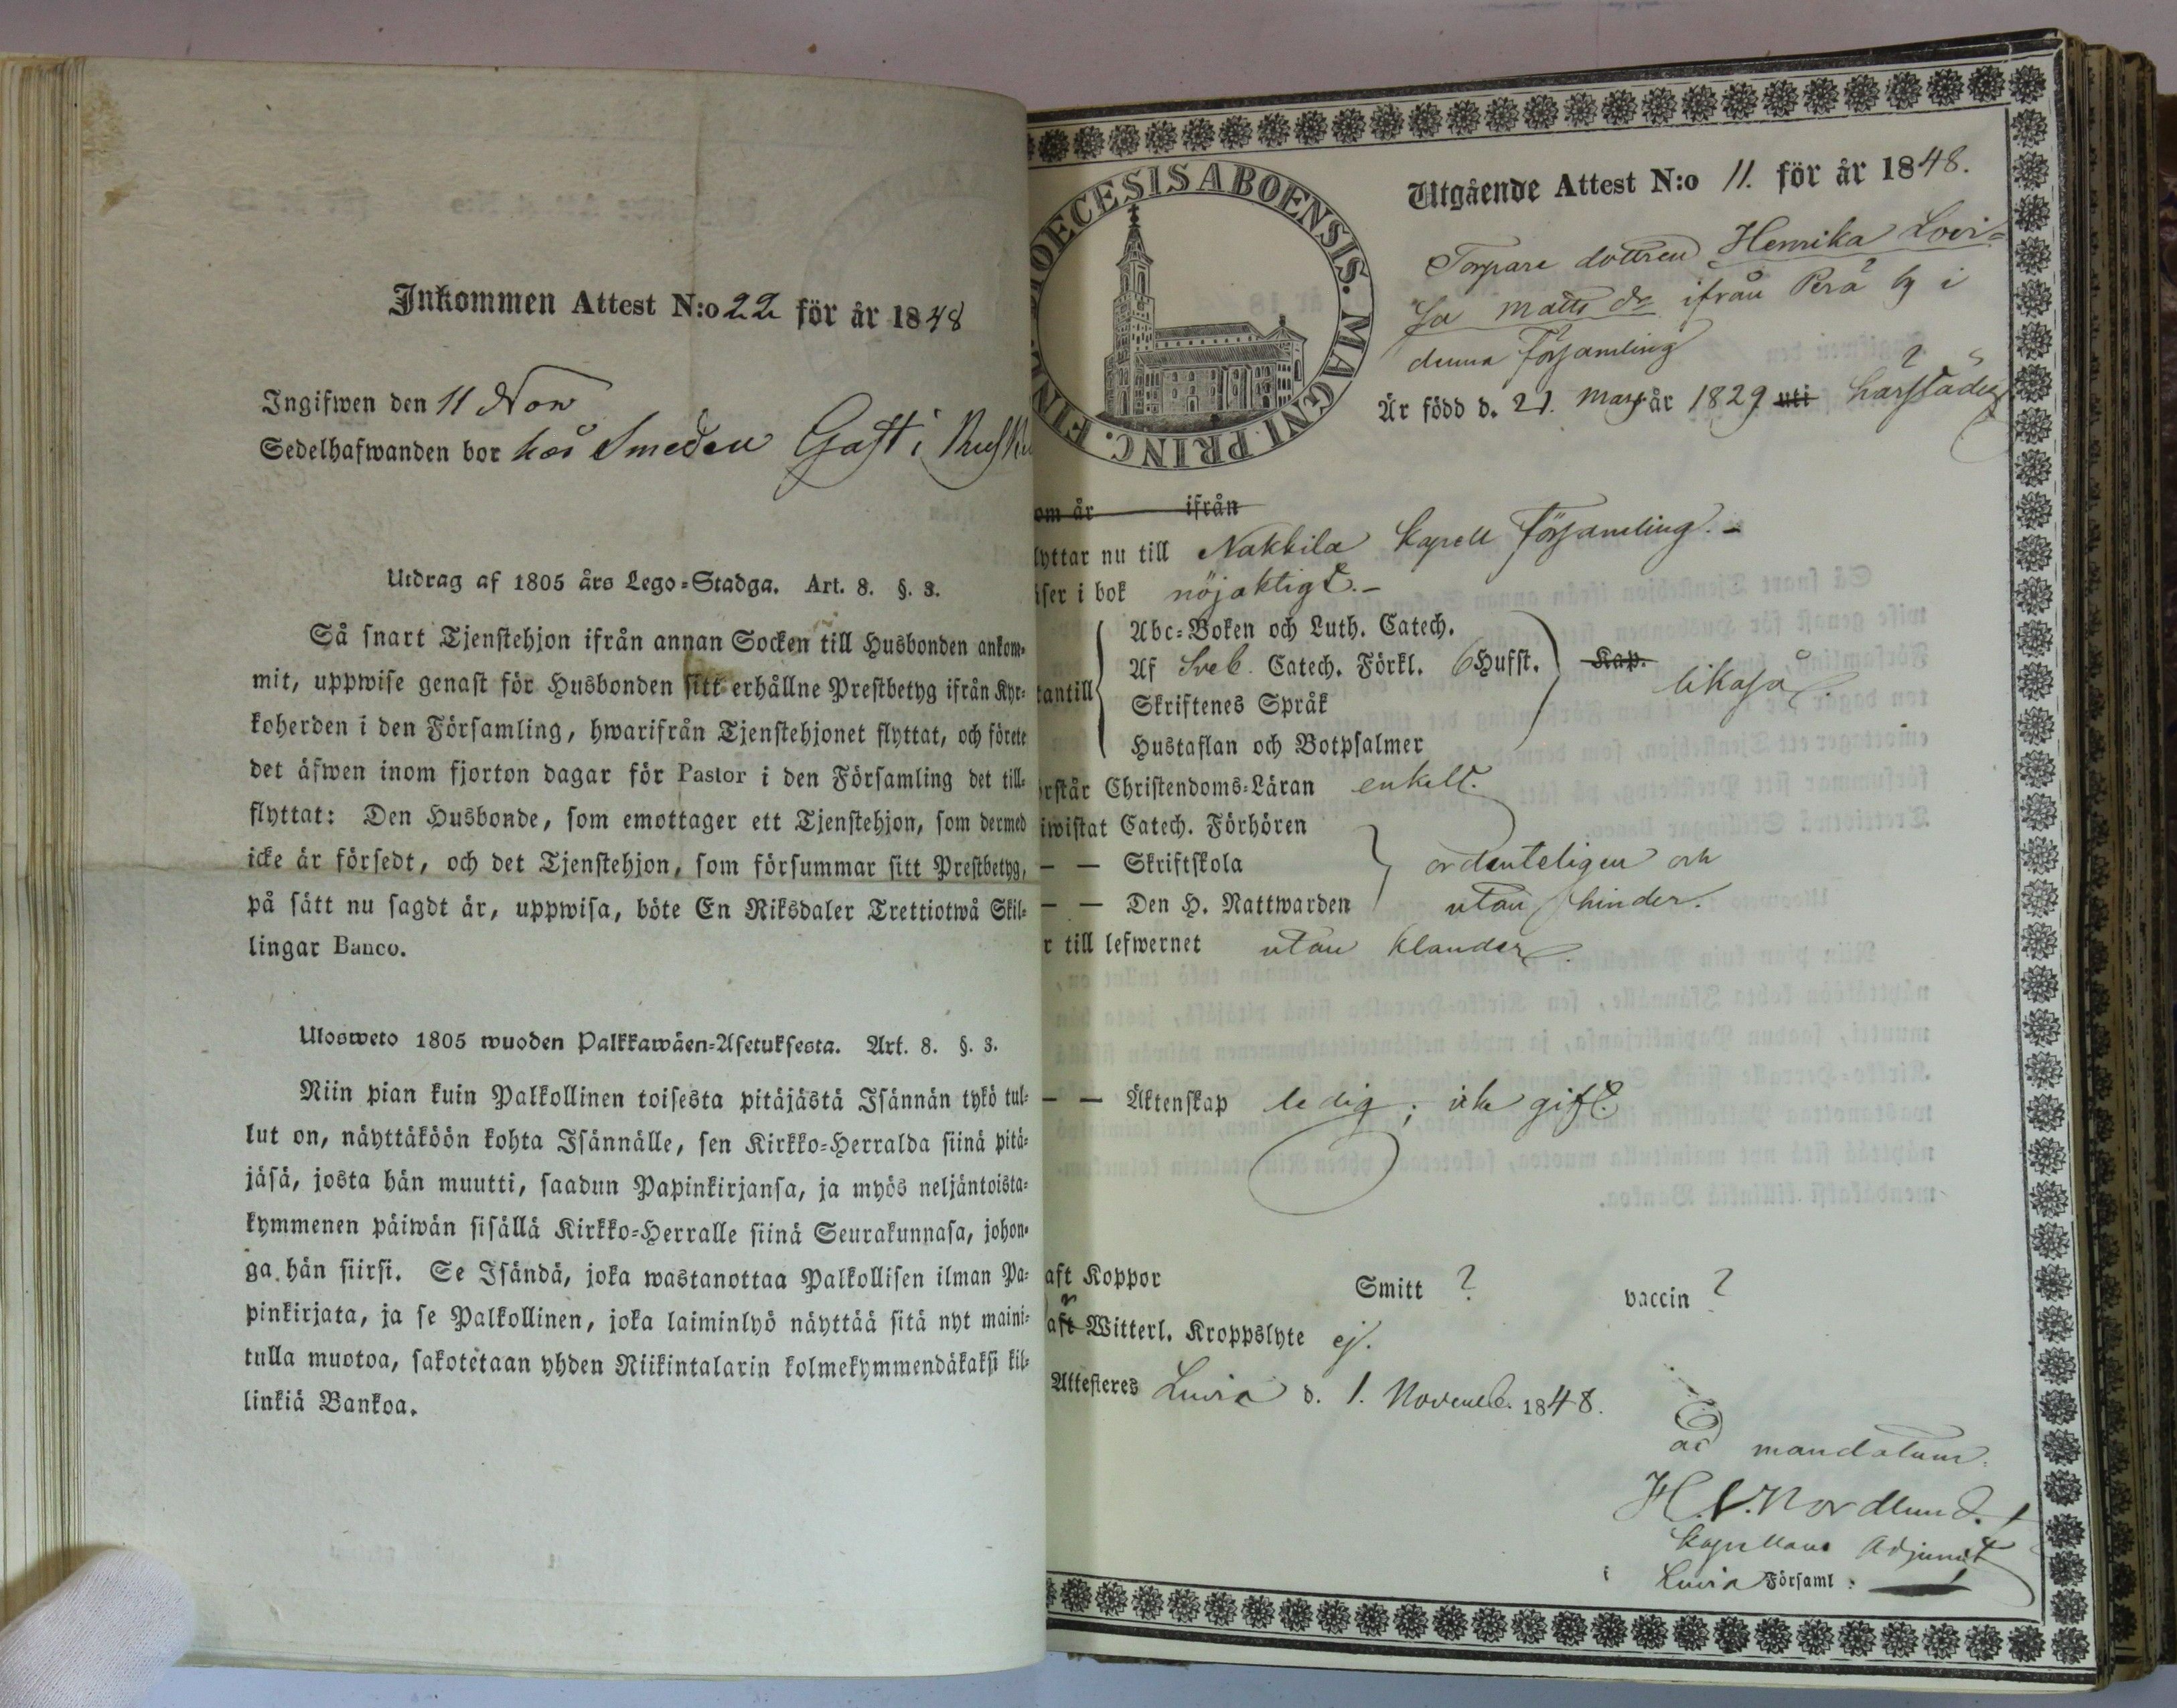 Inkommen Attest N:o 22 för år 1848
Ingifwen den 11 Nov
Sedelhafwanden bor hos Smeden Gast i
Utdrag af 1805 års Lego-Stadga. Art. 8. §. 3.
Så snart Tjenstehjon ifrån annan Socken till Husbonden ankom-
mit, uppwise genast för Husbonden sitt erhållne Prestbetyg ifrån Kyr-
koherden i den Församling, hwarifrån Tjenstehjonet flyttat, och förete
det äfwen inom fjorton dagar för Pastor i den Församling det till-
flyttat: Den Husbonde, som emottager ett Tjenstehjon, som dermed
icke är försedt, och det Tjenstehjon, som försummar sitt Prestbetyg,
på sätt nu sagdt är, uppwisa, böte En Riksdaler Trettiotwå Skil-
lingar Banco.
Ulosweto 1805 wuoden Palkkawäen-Asetuksesta. Art. 8. §. 3.
Niin pian kuin Palkollinen toisesta pitäjästä Isännän tykö tul-
lut on, näyttäköön kohta Isännälle, sen Kirkko-Herralda siinä pitä-
jäsä, josta hän muutti, saadun Papinkirjansa, ja myös neljäntoista-
kymmenen päiwän sisällä Kirkko-Herralle siinä Seurakunnasa, johon-
ga hän siirsi. Se Isändä, joka wastanottaa Palkollisen ilman Pa-
pinkirjata, ja se Palkollinen, joka laiminlyö näyttää sitä nyt maini-
tulla muotoa, sakotetaan yhden Riikintalarin kolmekymmendäkaksi kil-
linkiä Bankoa.
DIOECESIS ABOENSIS. MAGNI PRINC. FINL.
Utgående Attest N:o 11. för år 1848.
Torpare dottren Henrika Lovi=
sa Matts dr ifrån Perä by i
denna Församling
Är född d. 21. Mars år 1829 uti härstädes
om år ifrån
lyttar nu till Nakkila Kapell Församling. -
äser i bok nöjaktigt. -
Abc-Boken och Luth. Catech.
Af Sveb. Catech. Förkl. 6 Hufst. Kap.
tantill Skriftenes Språk likaså.
Hustaflan och Botpsalmer
örstår Christendoms-Läran enkelt.
iwistat Catech. Förhören
— — Skriftskola ordenteligen och
— — Den H. Nattwarden utan hinder.
r till lefwernet utan klander.
— — Äktenskap ledig; icke gift.
aft Koppor Smitt ? vaccin ?
aft Witterl. Kroppslyte ej.
Attesteres Luvia d. 1. Novemb. 1848.
ad mandatum.
H. L. Nordlund.
Kapellans Adjunct
i Luvia Församl: